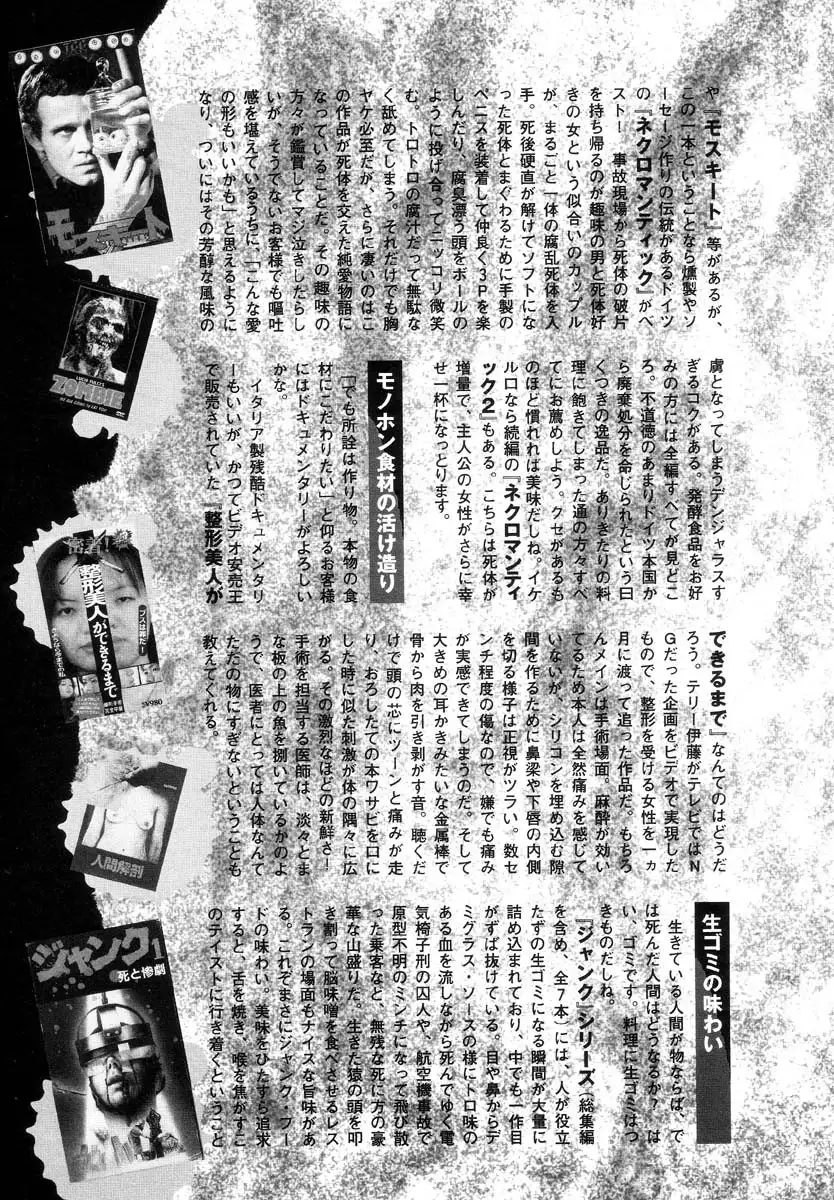 や『モスキート』等があるが、
この一本ということなら燻製やソ
ーセージ作りの伝統があるドイツ
の『ネクロマンティック』がベ
スト！　事故現場から死体の破片
を持ち帰るのが趣味の男と死体好
きの女という似合いのカップル
が、まるごと一体の腐乱死体を入
手。死後硬直が解けてソフトにな
った死体とまぐわるために手製の
ペニスを装着して仲良く3Pを楽
しんだり、腐臭漂う頭をボールの
ように投げ合ってニッコリ微笑
む。トロトロの腐汁だって無駄な
く舐めてしまう。それだけでも胸
ヤケ必至だが、さらに凄いのはこ
の作品が死体を交えた純愛物語に
なっていることだ。その趣味の
方々が鑑賞してマジ泣きしたらし
いが、そうでないお客様でも嘔吐
感を堪えているうちに、「こんな愛
の形もいいかも」と思えるように
なり、ついにはその芳醇な風味の
虜となってしまうデンジャラスす
ぎるコクがある。発酵食品をお好
みの方には全編すべてが見どこ
ろ。不道徳のあまりドイツ本国か
ら廃棄処分を命じられたという曰
くつきの逸品だ。ありきたりの料
理に飽きてしまった通の方々すべ
てにお薦めしよう。クセがあるも
のほど慣れれば美味だしね。イケ
ルロなら続編の『ネクロマンティ
ック2』もある。こちらは死体が
増量で、主人公の女性がさらに幸
せ一杯になっとります。
モノホン食材の活け造り
「でも所詮は作り物。本物の食
材にこだわりたい」と仰るお客様
にはドキュメンタリーがよろしい
かな。
イタリア製残酷ドキュメンタリ
ーもいいが、かつてビデオ安売王
で販売されていた『整形美人が
できるまで』なんてのはどうだ
ろう。テリー伊藤がテレビではN
Gだった企画をビデオで実現した
もので、整形を受ける女性を一ヵ
月に渡って追った作品だ。もちろ
んメインは手術場面。麻酔が効い
てるため本人は全然痛みを感じて
いないが、シリコンを埋め込む隙
間を作るために鼻梁や下唇の内側
を切る様子は正視がツラい。数セ
ンチ程度の傷なので、嫌でも痛み
が実感できてしまうのだ。そして
大きめの耳かきみたいな金属棒で
骨から肉を引き剥がす音。聴くだ
けで頭の芯にツーンと痛みが走
り、おろしたての本ワサビを口に
した時に似た刺激が体の隅々に広
がる。その激烈なほどの新鮮さ！
手術を担当する医師は、淡々とま
な板の上の魚を捌いているかのよ
うで、医者にとっては人体なんて
ただの物にすぎないということも
教えてくれる。
生ゴミの味わい
生きている人間が物ならば、で
は死んだ人間はどうなるか？　は
い、ゴミです。料理に生ゴミはつ
きものだしね。
『ジャンク』シリーズ（総集編
を含め、全7本）には、人が役立
たずの生ゴミになる瞬間が大量に
詰め込まれており、中でも一作目
がずば抜けている。目や鼻からデ
ミグラス・ソースの様にトロ味の
ある血を流しながら死んでゆく電
気椅子刑の囚人や、航空機事故で
原型不明のミンチになって飛び散
った乗客など、無残な死に方の豪
華な山盛りだ。生きた猿の頭を叩
き割って脳味噌を食べさせるレス
トランの場面もナイスな旨味があ
る。これぞまさにジャンク・フー
ドの味わい。美味をひたすら追求
すると、舌を焼き、喉を焦がすこ
のテイストに行き着くということ
モスキート
ZOMBIE
整形美人ができるまで
ブスは罪だー
人間解剖
ジャンク1
死と惨劇